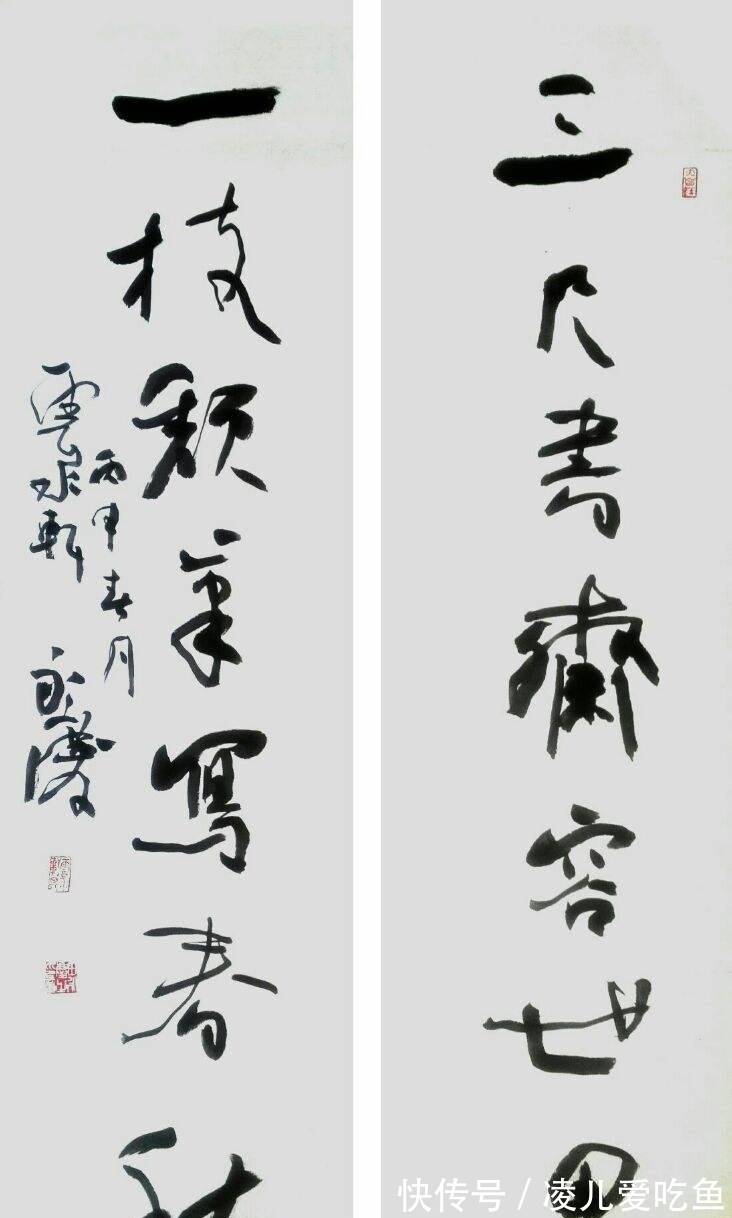 三尺書齋容世界
一枝筆寫春秋
丙申春月
雲水軒
快传号 / 凌儿爱吃鱼